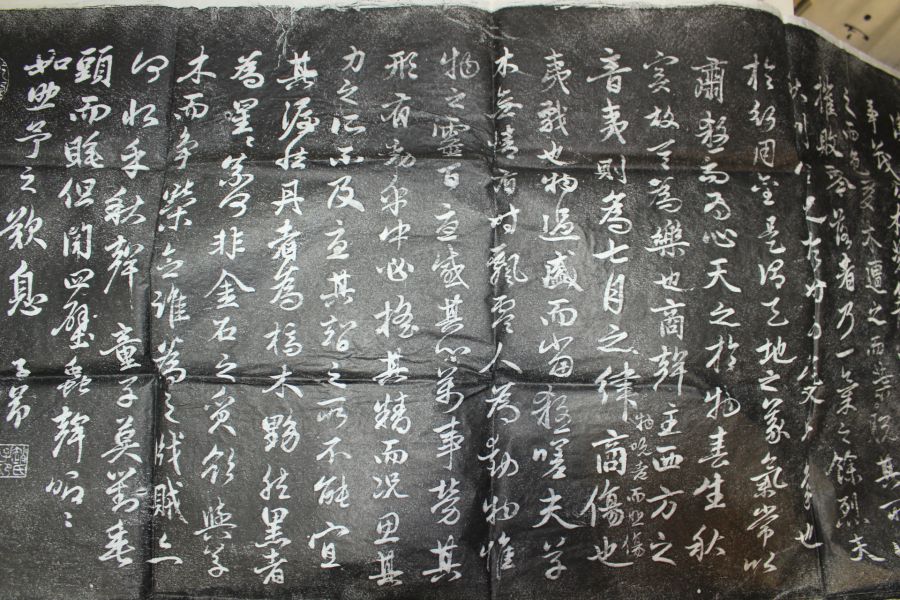 摧敗零落者乃一氣之餘烈夫
於行用金是謂天地之義氣常以
肅殺而為心天之於物春生秋
實故其為樂也商聲主西方之
音夷則為七月之律商傷也
物既老而悲傷
夷戮也物過盛而當殺嗟夫草
木無情有時飄零人為動物惟
物之靈百憂感其心萬事勞其
形有動乎中必搖其精而況思其
力之所不及憂其智之所不能宜
其渥然丹者為槁木黟然黑者
為星星奈何非金石之質欲與草
木而爭榮念誰為之戕賊亦
何恨乎秋聲 童子莫對垂
頭而睡但聞四壁蟲聲唧唧
如助予之歎息 子昂
趙氏子昂